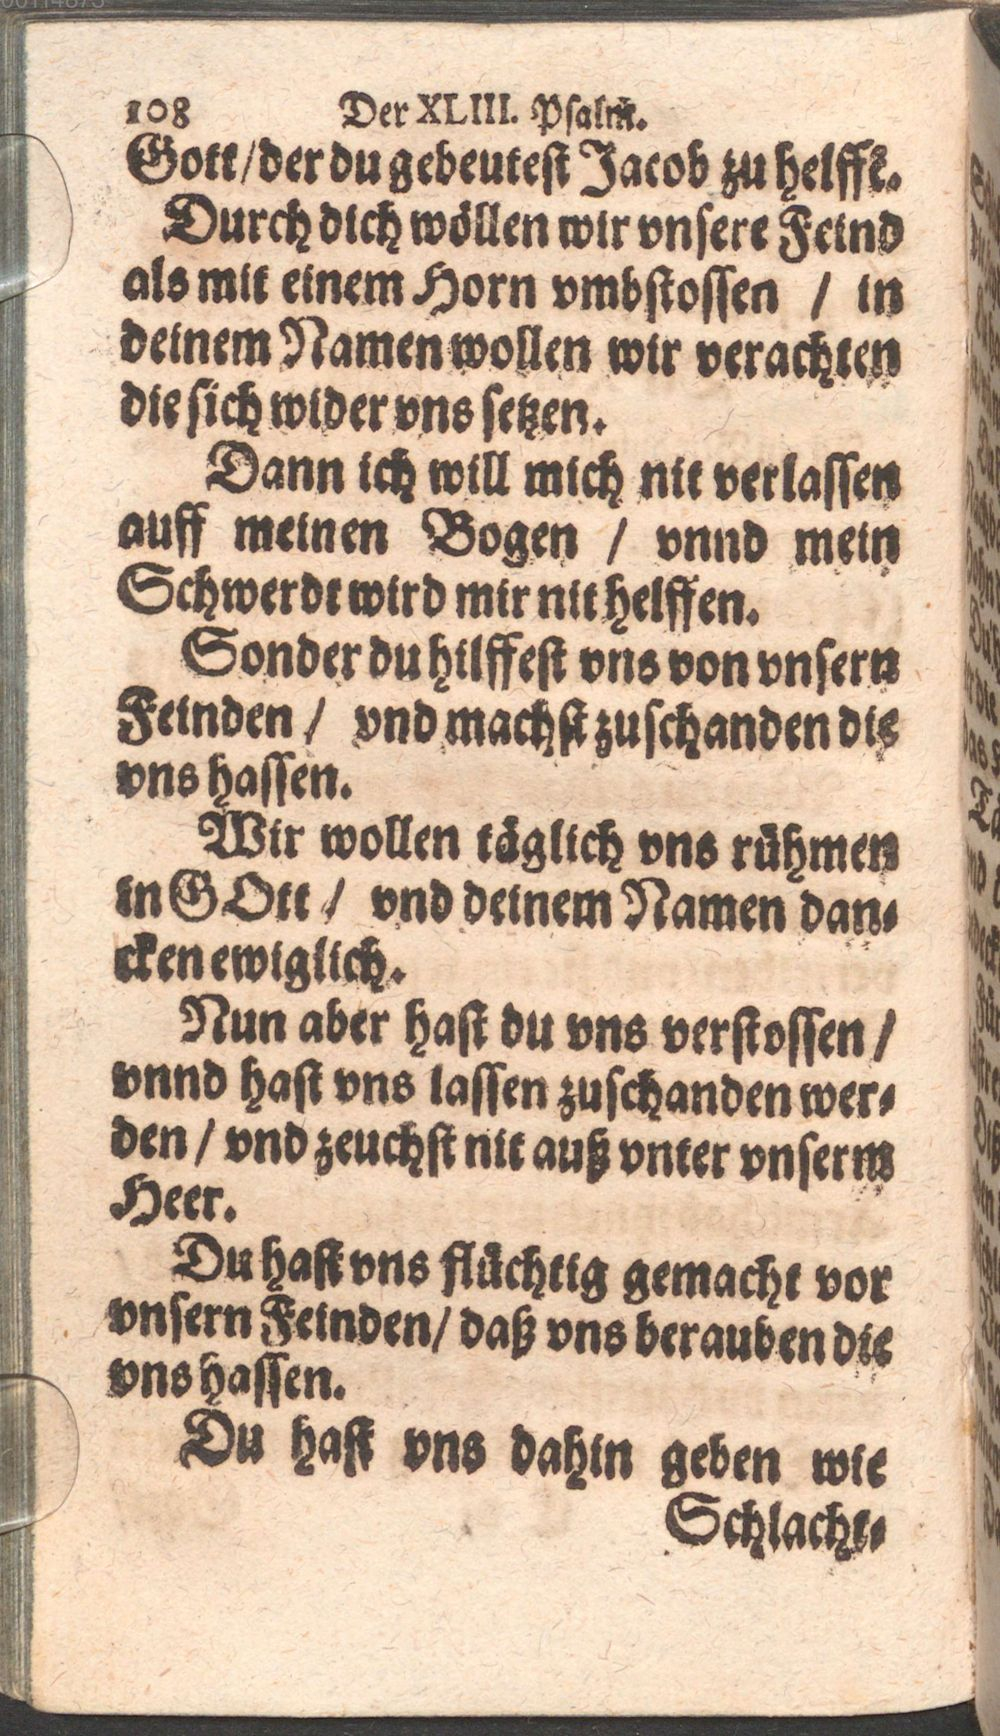 108 Der XLIII. Psalm.
Gott/der du gebeutest Jacob zu helffē.
Durch dich wöllen wir vnsere Feind
als mit einem Horn vmbstossen / in
deinem Namen wollen wir verachten
die sich wider vns setzen.
Dann ich will mich nit verlassen
auff meinen Bogen / vnnd mein
Schwerdt wird mir nit helffen.
Sonder du hilffest vns von vnsern
Feinden / vnd machst zuschanden die
vns hassen.
Wir wollen täglich vns rühmen
in GOtt / vnd deinem Namen dan-
cken ewiglich.
Nun aber hast du vns verstossen /
vnnd hast vns lassen zuschanden wer-
den / vnd zeuchst nit auß vnter vnserm
Heer.
Du hast vns flüchtig gemacht vor
vnsern Feinden/ daß vns berauben die
vns hassen.
Du hast vns dahin geben wie
Schlacht-